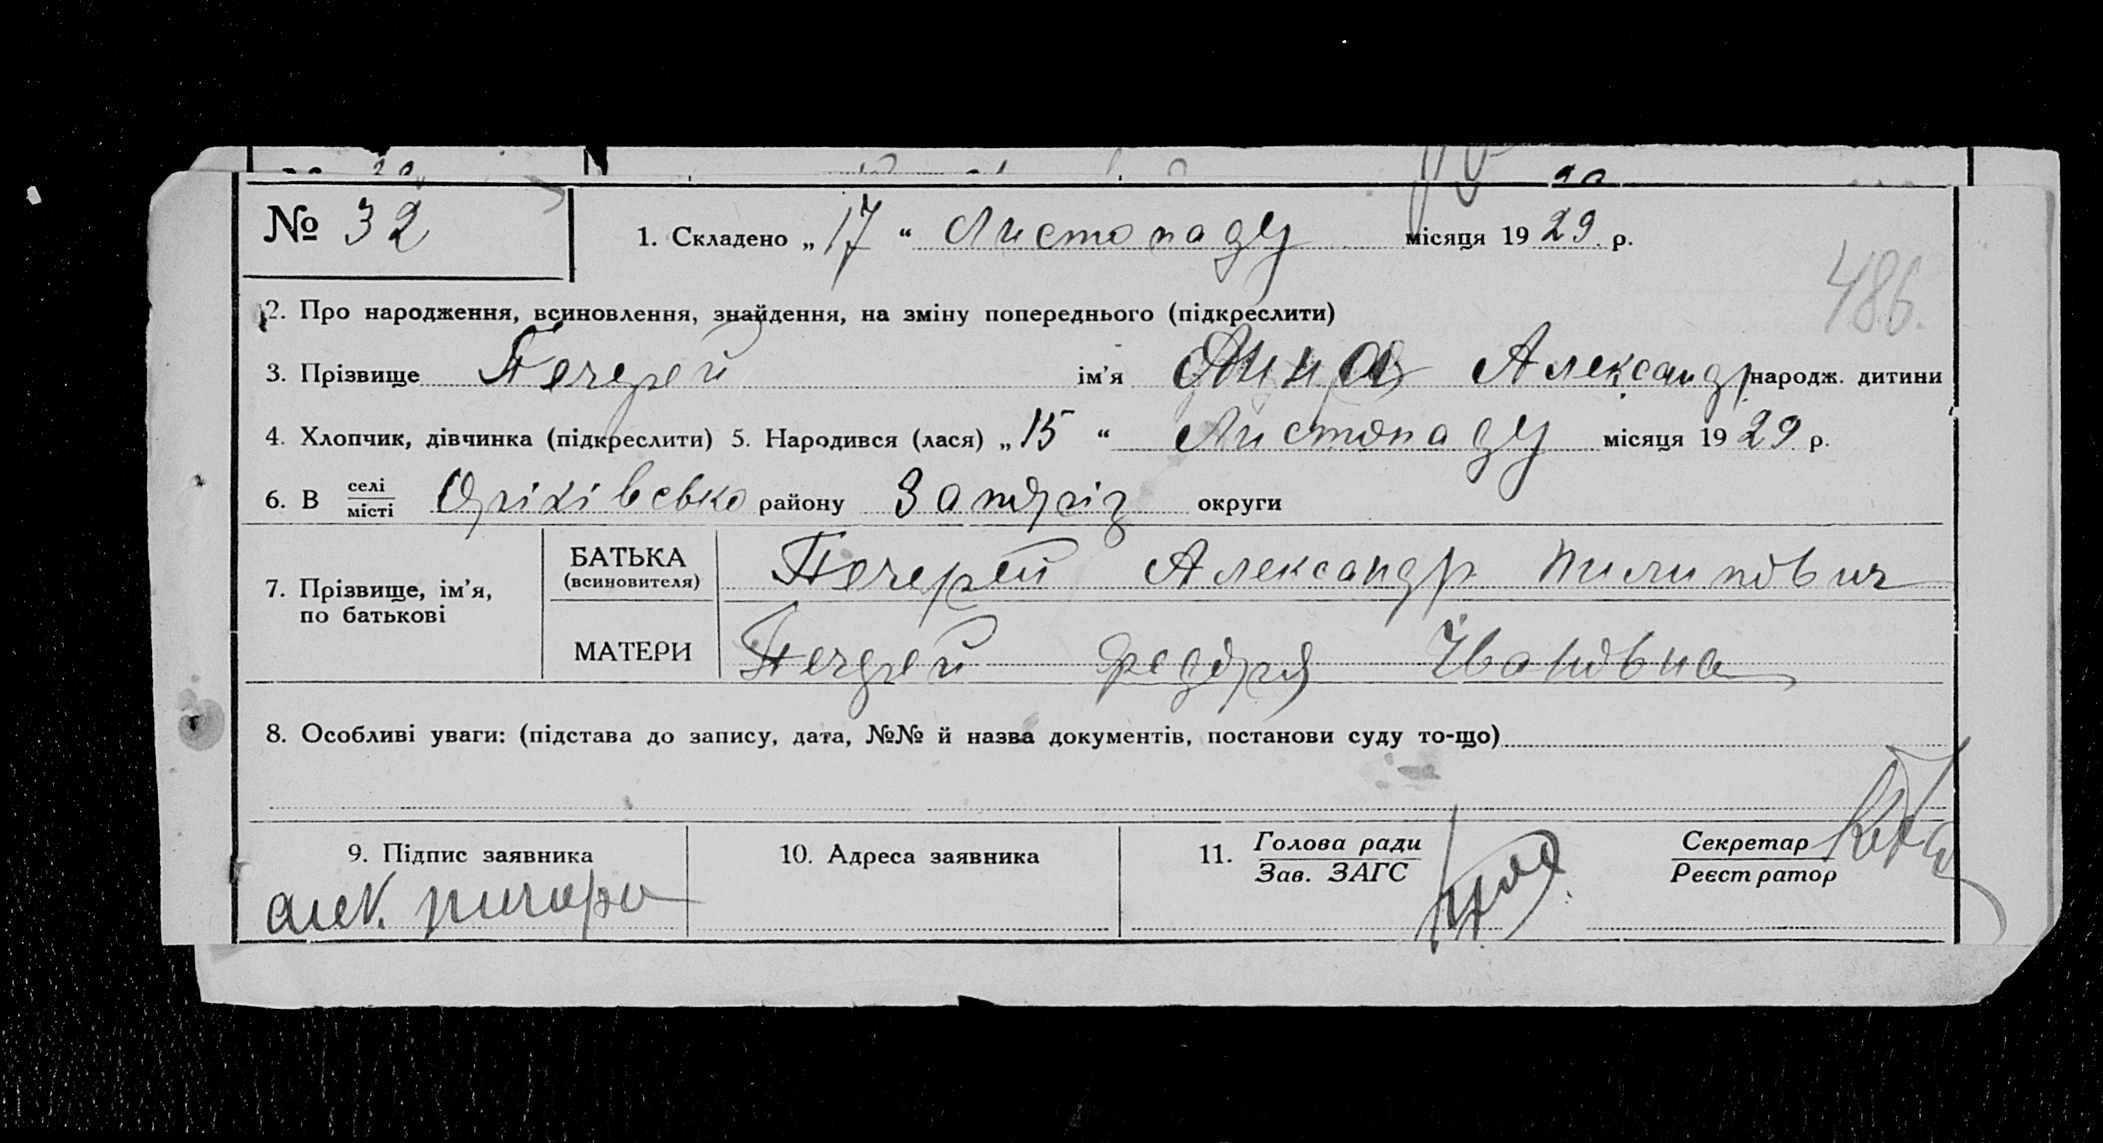 № 32
1. Складено „ 17 “ Листопаду місяця 19 29 р.
486.
2. Про народження, всиновлення, знайдення, на зміну попереднього (підкреслити)
3. Прізвище Печерей ім’я Анна Александр народж. дитини
4. Хлопчик, дівчинка (підкреслити) 5. Народився (лася) „ 15 “ Листопаду місяця 19 29 р.
6. В селі місті Оріхівсько району Запоріз округи
7. Прізвище, ім’я, по батькові
БАТЬКА (всиновителя) Печерей Александр Пилипович
МАТЕРИ Печерей Федоря Івановна
8. Особливі уваги: (підстава до запису, дата, №№ й назва документів, постанови суду то-що)
9. Підпис заявника
алек.
10. Адреса заявника
11. Голова ради
Зав. ЗАГС
Секретар
Реєстратор